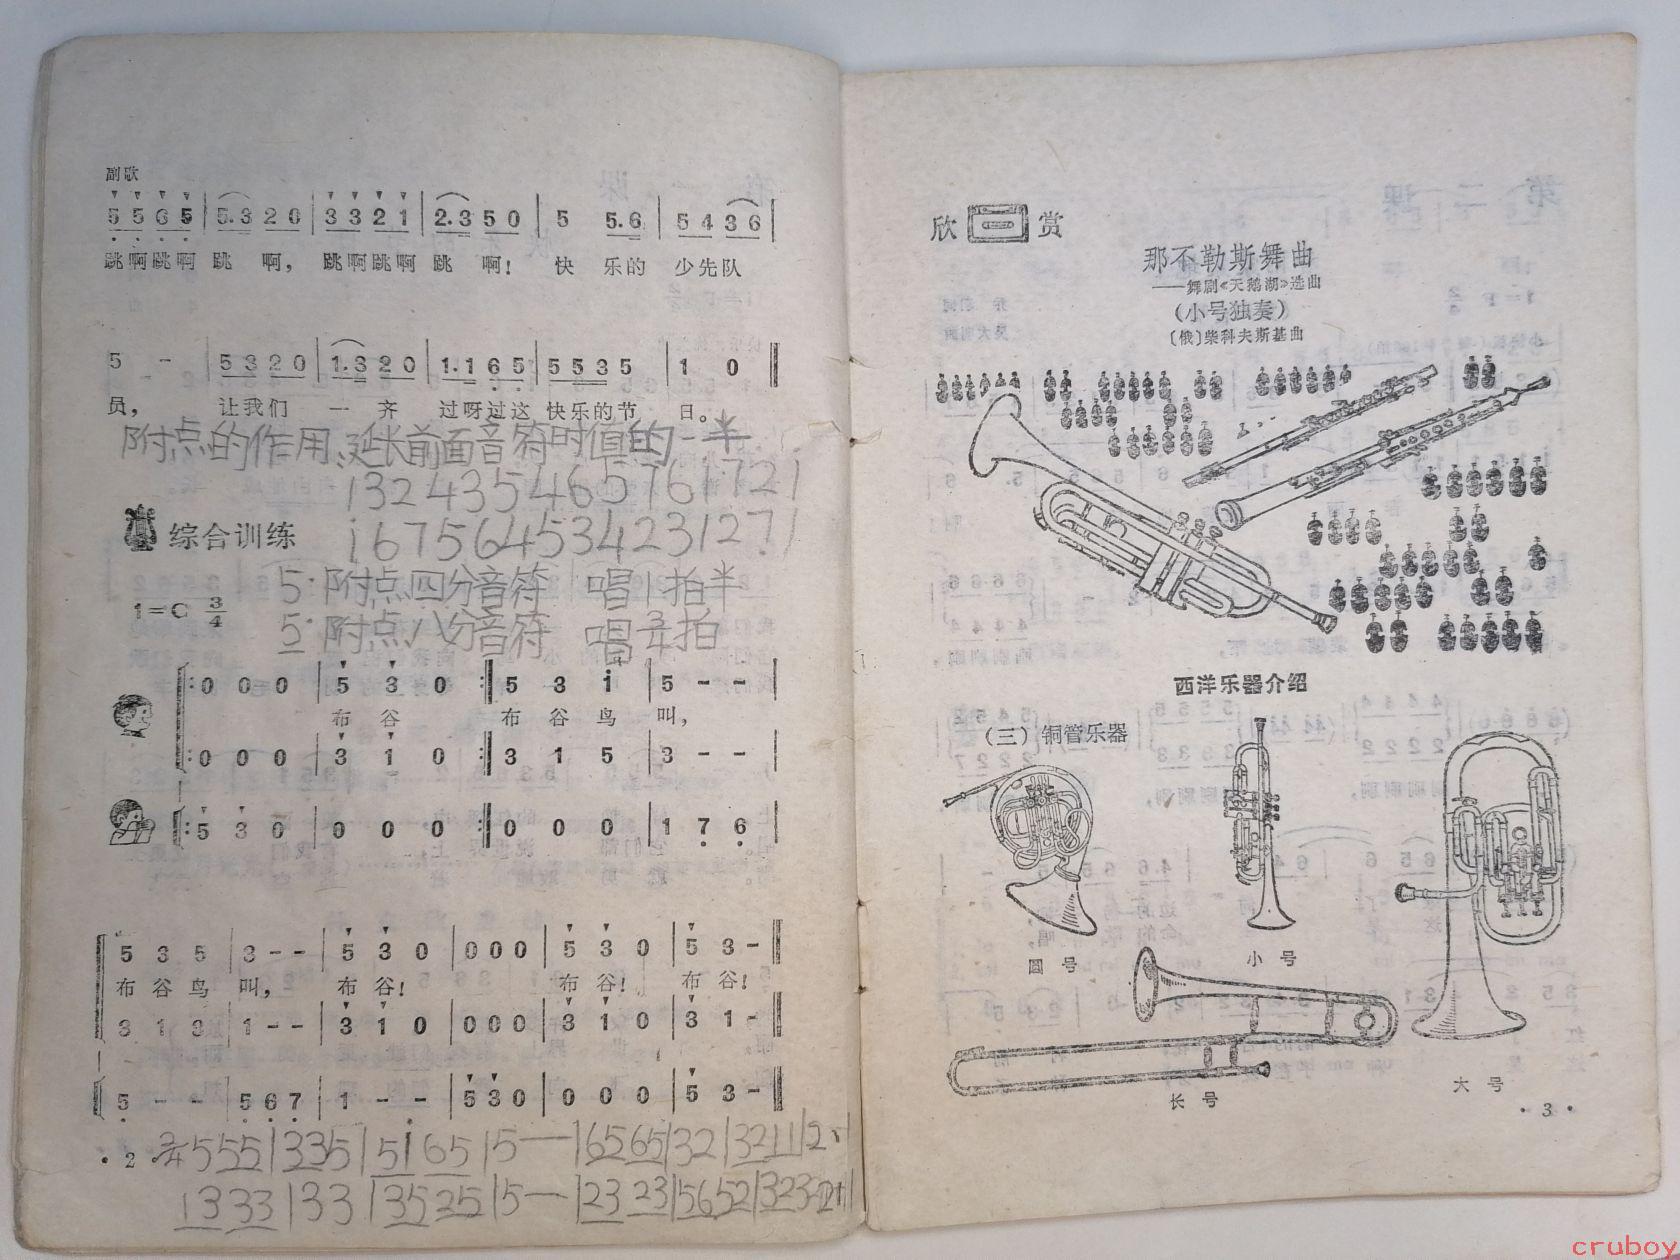 副歌
5 5 6 5 | 5.3 2 0 | 3 3 2 1 | 2.3 5 0 | 5 5.6 | 5 4 3 6 |
跳啊跳啊 跳 啊， 跳啊跳啊 跳 啊！ 快 乐的 少先队
5 - | 5 3 2 0 | 1.3 2 0 | 1.1 6 5 | 5 5 3 5 | 1 0 ‖
员， 让我们 一 齐 过呀过这 快乐的节 日。
附点的作用：延长前面音符时值的一半
1 3 2 4 3 5 4 6 5 7 6 1 7 2 1
1 6 7 5 6 4 5 3 4 2 3 1 2 7 1
综合训练
5· 附点四分音符 唱1拍半
1=C 3/4
5· 附点八分音符 唱3/4拍
‖: 0 0 0 | 5 3 0 :‖ 5 3 i | 5 - - |
布 谷 布 谷 鸟 叫，
‖: 0 0 0 | 3 1 0 :‖ 3 1 5 | 3 - - |
‖: 5 3 0 | 0 0 0 :‖ 0 0 0 | 1 7 6 |
5 3 5 | 3 - - | 5 3 0 | 0 0 0 | 5 3 0 | 5 3 - ‖
布 谷 鸟 叫， 布 谷！ 布 谷！ 布 谷！
3 1 3 | 1 - - | 3 1 0 | 0 0 0 | 3 1 0 | 3 1 - ‖
5 - - | 5 6 7 | 1 - - | 5 3 0 | 0 0 0 | 5 3 - ‖
2/4 5 55 | 33 5 | 5i 65 | 5 — | 65 65 | 3 2 | 32 11 | 2 · |
13 33 | 3 3 | 35 25 | 5 — | 23 23 | 56 52 | 323
· 2 ·
欣赏
那不勒斯舞曲
——舞剧《天鹅湖》选曲
（小号独奏）
〔俄〕柴科夫斯基曲
西洋乐器介绍
（三）铜管乐器
圆 号
小 号
长 号
大 号
· 3 ·
cruboy